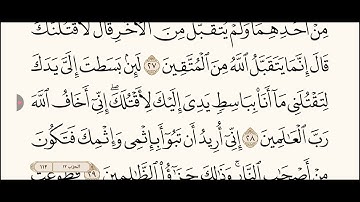 مِنْ أَحَدِهِمَا وَلَمْ يُتَقَبَّلْ مِنَ ٱلْءَاخَرِ قَالَ لَأَقْتُلَنَّكَ
قَالَ إِنَّمَا يَتَقَبَّلُ ٱللَّهُ مِنَ ٱلْمُتَّقِينَ ٢٧ لَئِنۢ بَسَطتَ إِلَيَّ يَدَكَ
لِتَقْتُلَنِي مَآ أَنَا۠ بِبَاسِطٖ يَدِيَ إِلَيْكَ لِأَقْتُلَكَۖ إِنِّيٓ أَخَافُ ٱللَّهَ
رَبَّ ٱلْعَٰلَمِينَ ٢٨ إِنِّيٓ أُرِيدُ أَن تَبُوٓأَ بِإِثْمِي وَإِثْمِكَ فَتَكُونَ
مِنْ أَصْحَٰبِ ٱلنَّارِۚ وَذَٰلِكَ جَزَٰٓؤُا۟ ٱلظَّٰلِمِينَ ٢٩ فَطَوَّعَتْ
١١٢ الحزب ١٢